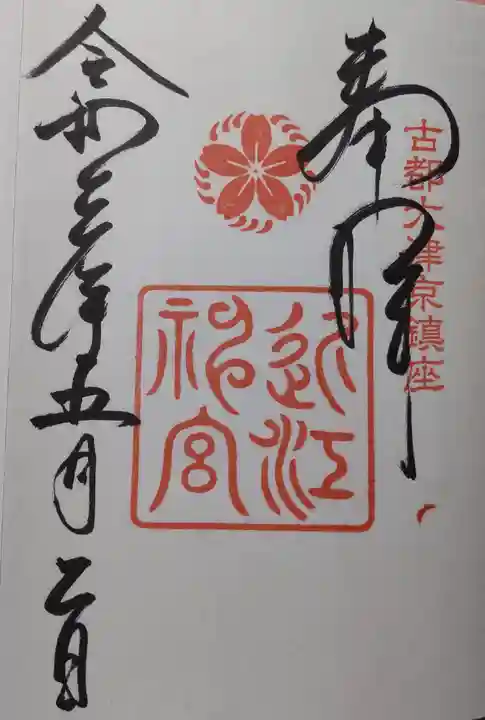 奉拝
古都大津京鎮座
近江
神宮
令和三年五月二日